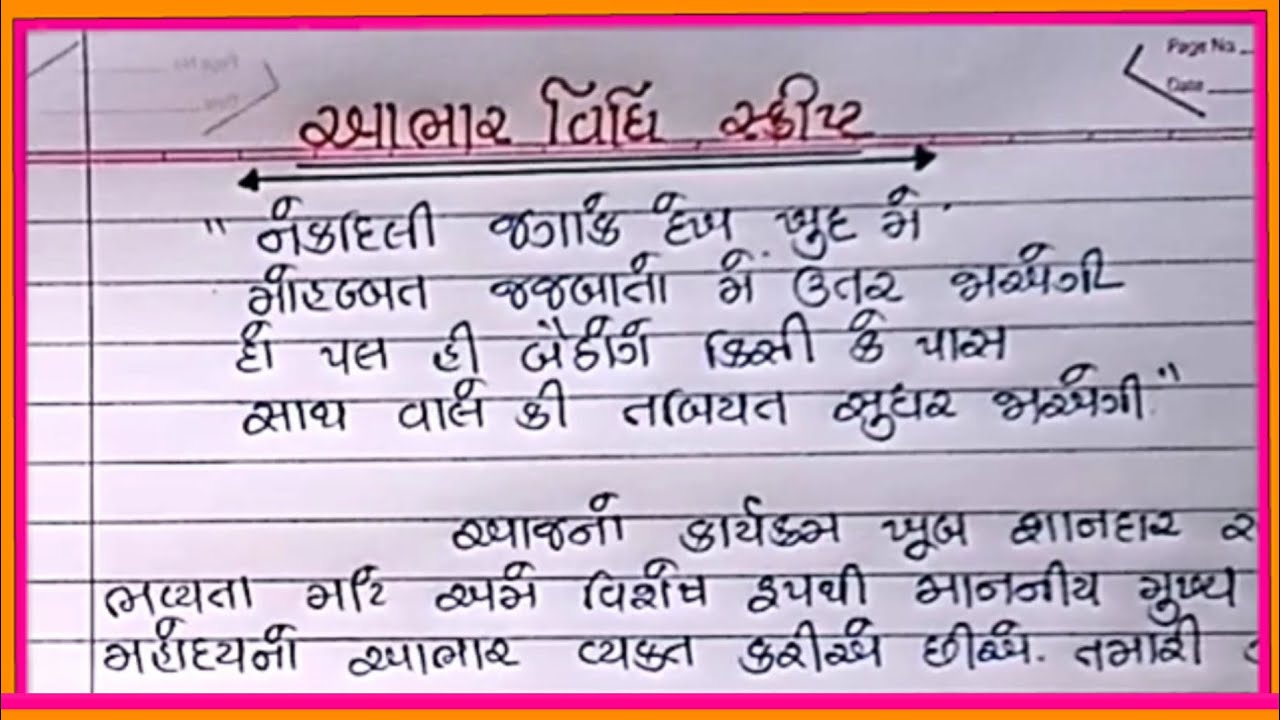 Page No.
Date
આભાર વિધિ સ્ક્રીપ્ટ
"નેકદિલી જગાકે દેખ ખુદ મેં
મોહબ્બત જજબાતો મેં ઉતર જાએગી
દો પલ હી બૈઠોગે કિસી કે પાસ
સાથ વાલે કી તબિયત સુધર જાએગી."
આજનો કાર્યક્રમ ખૂબ શાનદાર ર
ભવ્યતા માટે અમે વિશેષ રૂપથી માનનીય મુખ્ય
મહોદયનો આભાર વ્યક્ત કરીએ છીએ. તમારી